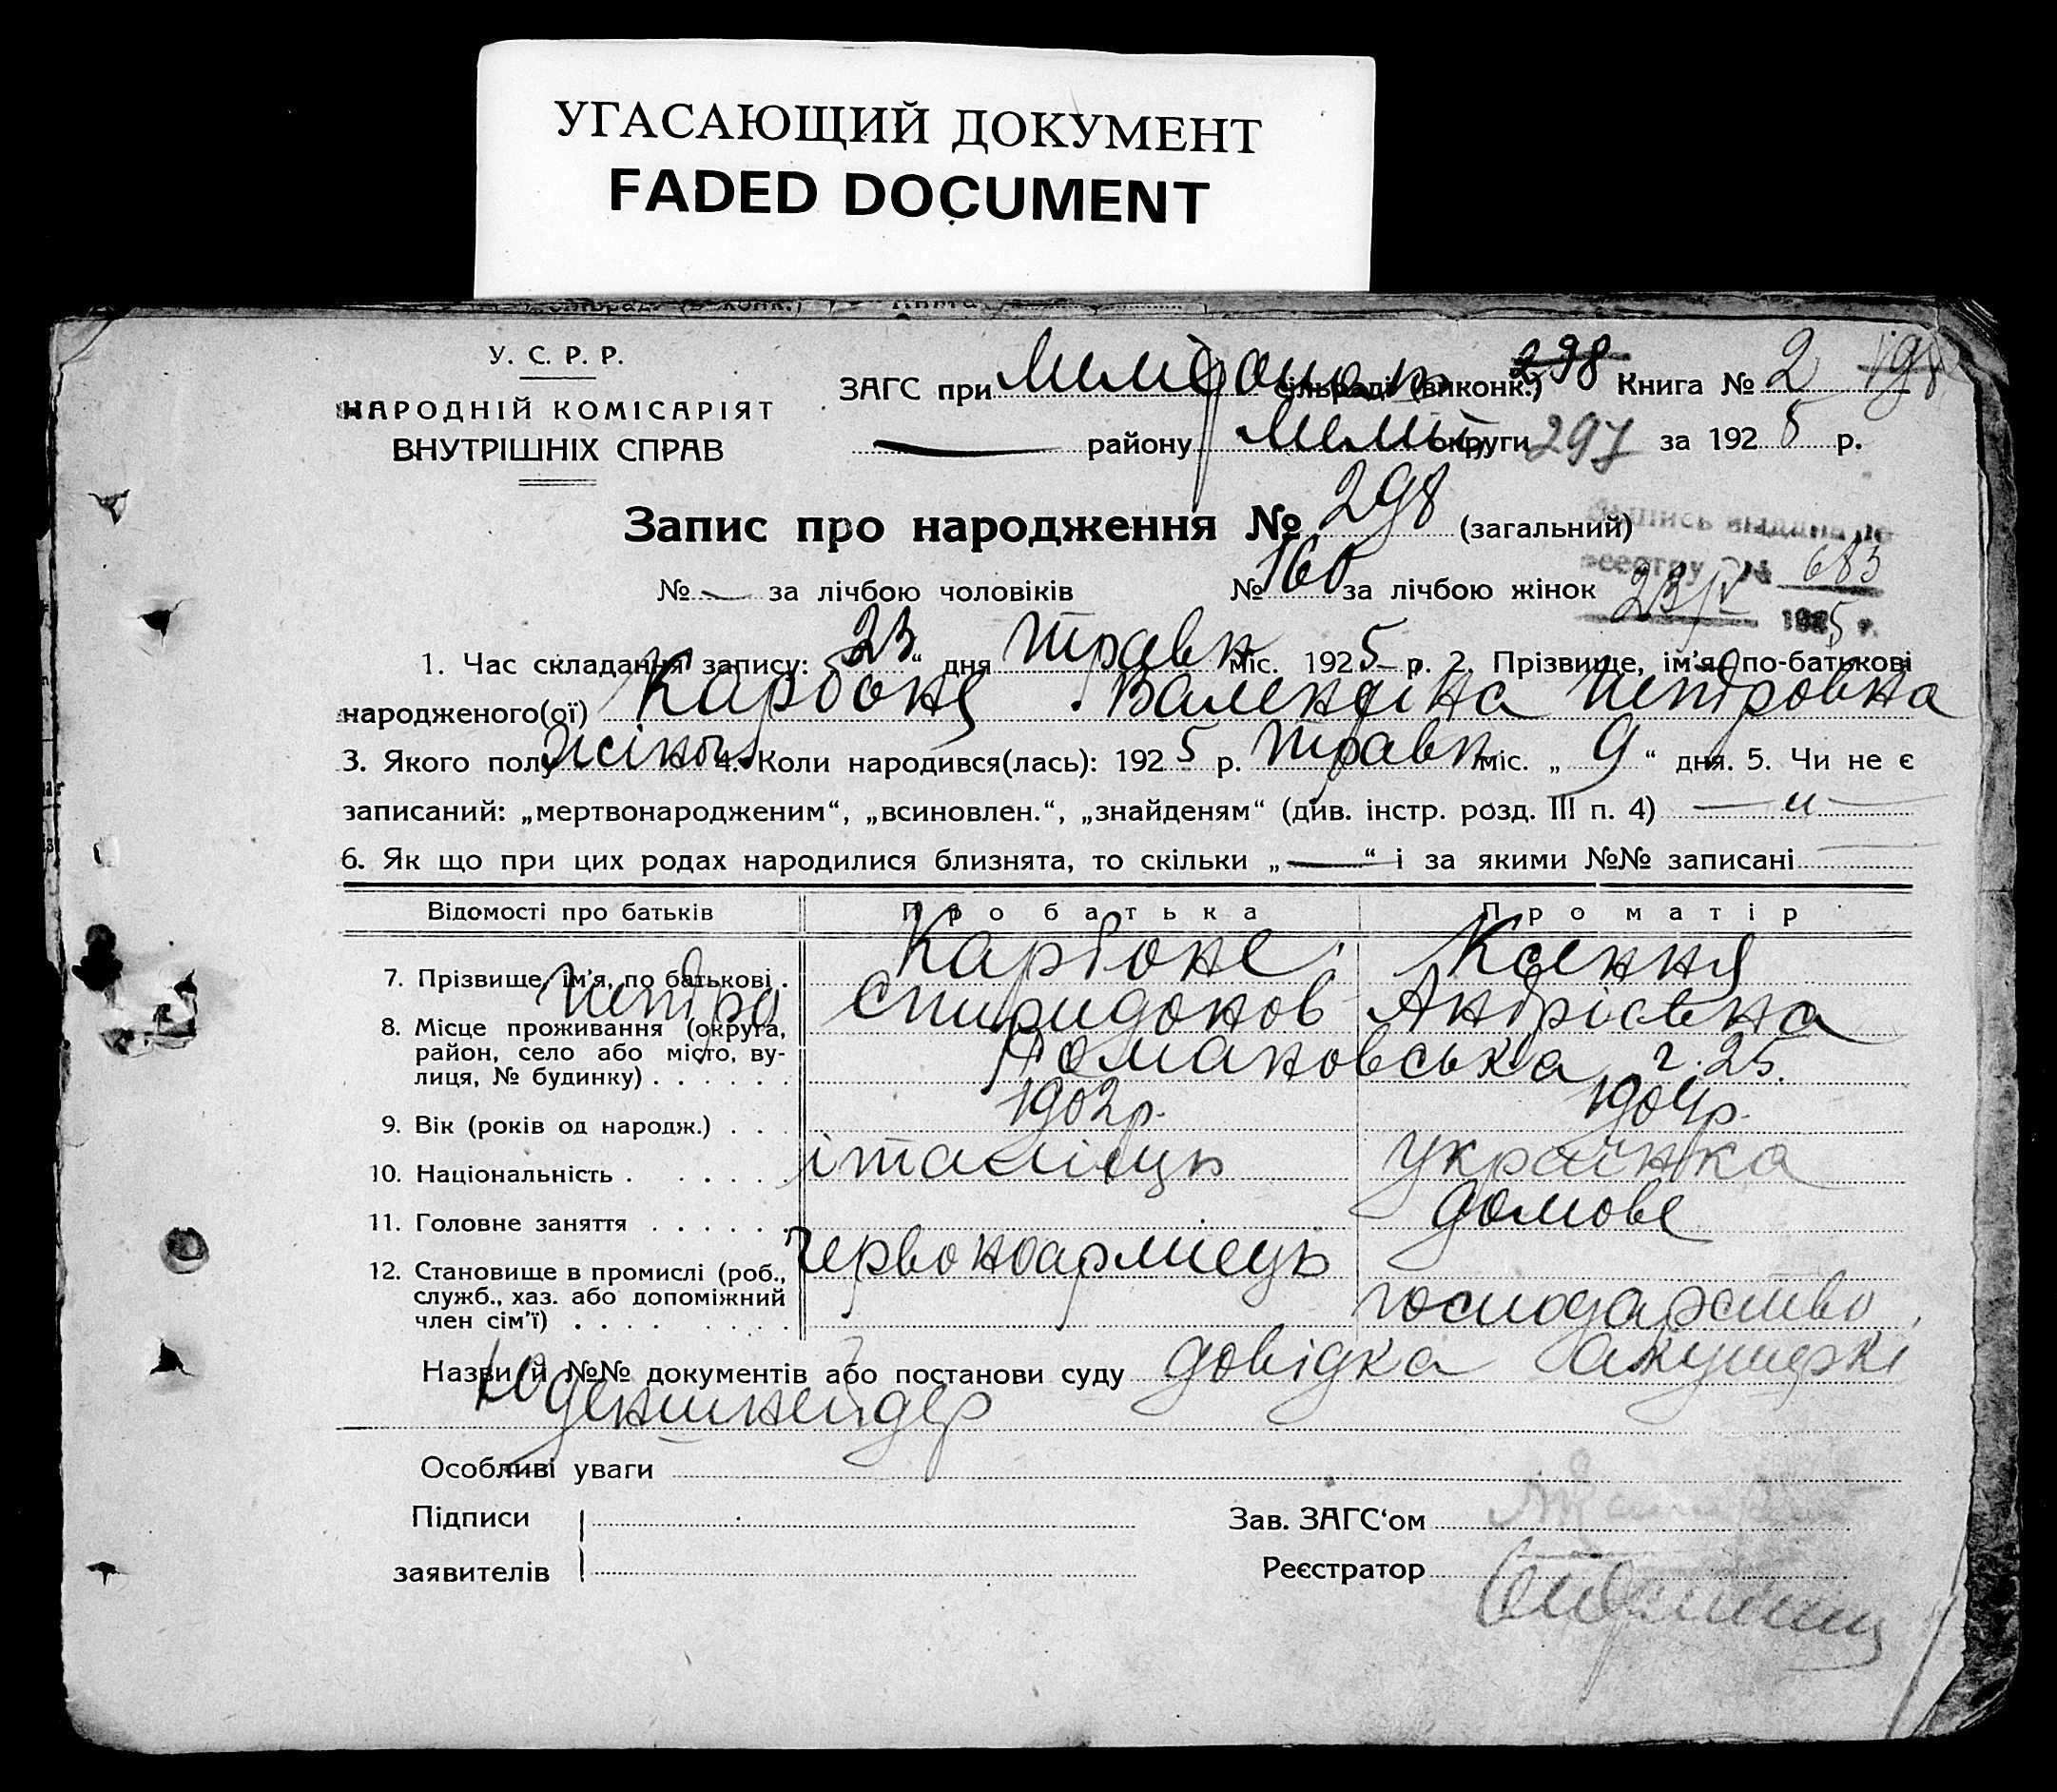 УГАСАЮЩИЙ ДОКУМЕНТ
FADED DOCUMENT
У. С. Р. Р.
НАРОДНІЙ КОМІСАРІЯТ
ВНУТРІШНІХ СПРАВ
ЗАГС при сільраді (виконк.) 298 Книга № 2 198
района округи 297 за 1925 р.
Запис про народження № 298 (загальний)
№ — за лічбою чоловіків № 160 за лічбою жінок
Выпись выдана по
реестру № 683
23/V 1925 г.
1. Час складання запису: 23 “ дня травн міс. 1925 р. 2. Прізвище, ім'я, по-батькові
народженого(ої) Карбоне Валентіна Петровна
3. Якого полу жіноч 4. Коли народився(лась): 1925 р. травн міс. „ 9 “ дня. 5. Чи не є
записаний: „мертвонародженим“, „всиновлен.“, „знайденям“ (див. інстр. розд. III п. 4) — и —
6. Як що при цих родах народилися близнята, то скільки „ — “ і за якими №№ записані
Відомості про батьків Про батька Про матір
7. Прізвище, ім'я, по батькові . Карбоне Ксенія
Петро Спиридонов Андрієвна
8. Місце проживання (округа,
район, село або місто, ву-
лиця, № будинку) . . . . . . Романовська, ч. 25.
9. Вік (років од народж.) . . . 1902р. 1904р.
10. Національність . . . . . . італієць українка
11. Головне заняття . . . . . . домове
12. Становище в промислі (роб.,
служб., хаз. або допоміжний
член сім'ї) . . . . червоноармієць господарство
Назви й №№ документів або постанови суду довідка акушеркі
Особливі уваги
Підписи
заявителів
Зав. ЗАГС‘ом
Реєстратор